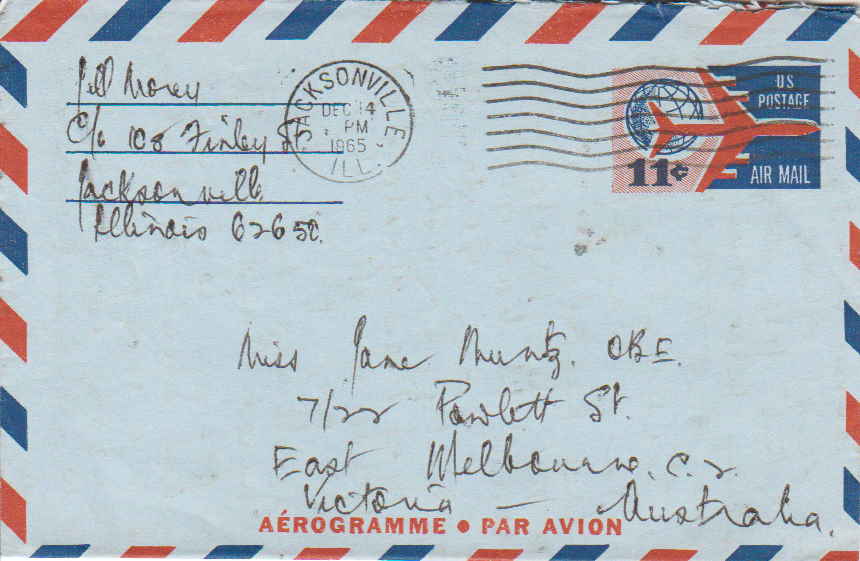 Jill Morey
C/o 108 Finley St.
Jacksonville
Illinois 62650.
JACKSONVILLE
DEC 14
PM
1965
ILL.
US
POSTAGE
11¢
AIR MAIL
Miss Jane Muntz. OBE.
7/22 Powlett St.
East Melbourne. C.2.
Victoria — Australia.
AÉROGRAMME • PAR AVION